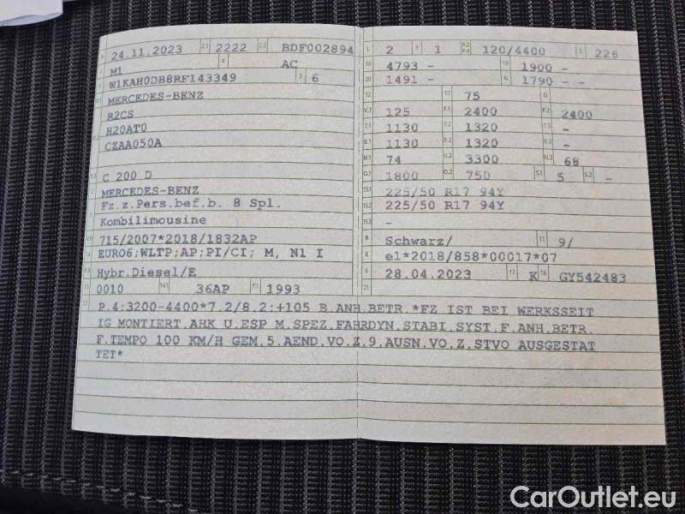 24.11.2023 2222 BDF002894
M1 AC
W1KAH0DB8RF143349 6
MERCEDES-BENZ
R2CS
H20AT0
CZAA050A
C 200 D
MERCEDES-BENZ
Fz.z.Pers.bef.b. 8 Spl.
Kombilimousine
715/2007*2018/1832AP
EURO6;WLTP;AP;PI/CI; M, N1 I
Hybr.Diesel/E
0010 36AP 1993
2 1 120/4400 226
4793 - 1900 -
1491 - 1790 -
75
125 2400 2400
1130 1320 -
1130 1320 -
74 3300 68
1800 750 5 -
225/50 R17 94Y
225/50 R17 94Y
-
Schwarz/ 9/
e1*2018/858*00017*07
28.04.2023 K GY542483
P.4:3200-4400*7.2/8.2:+105 B.ANH.BETR.*FZ IST BEI WERKSSEIT
IG MONTIERT.AHK U.ESP M.SPEZ.FAHRDYN.STABI.SYST.F.ANH.BETR.
F.TEMPO 100 KM/H GEM.5.AEND.VO.Z.9.AUSN.VO.Z.STVO AUSGESTAT
TET*
CarOutlet.eu